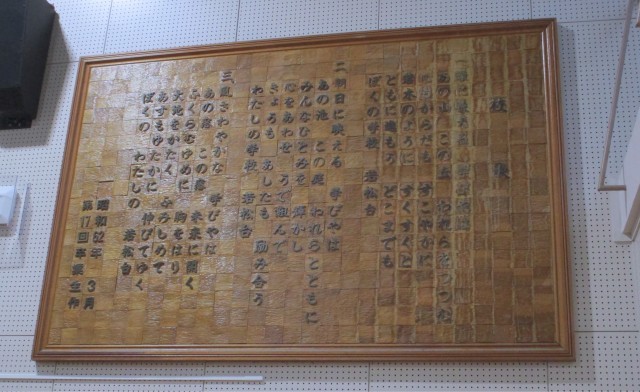 校歌
あの山 この丘 われらをつつむ
ともに進もう どこまでも
ぼくの学校 若松台
二 朝日に映える 学びやは
あの池 この庭 われらとともに
みんなひとみを 輝かし
心をあわせ うで組んで
きょうも あしたも 励み合う
わたしの学校 若松台
三 風さわやかな 学びやは
あの窓 この窓 未来に開く
ふくらむゆめに 胸をはり
大地をかたく ふみしめて
あすもゆたかに 伸びてゆく
ぼくの わたしの 若松台
昭和62年 3月
第17回卒業生作